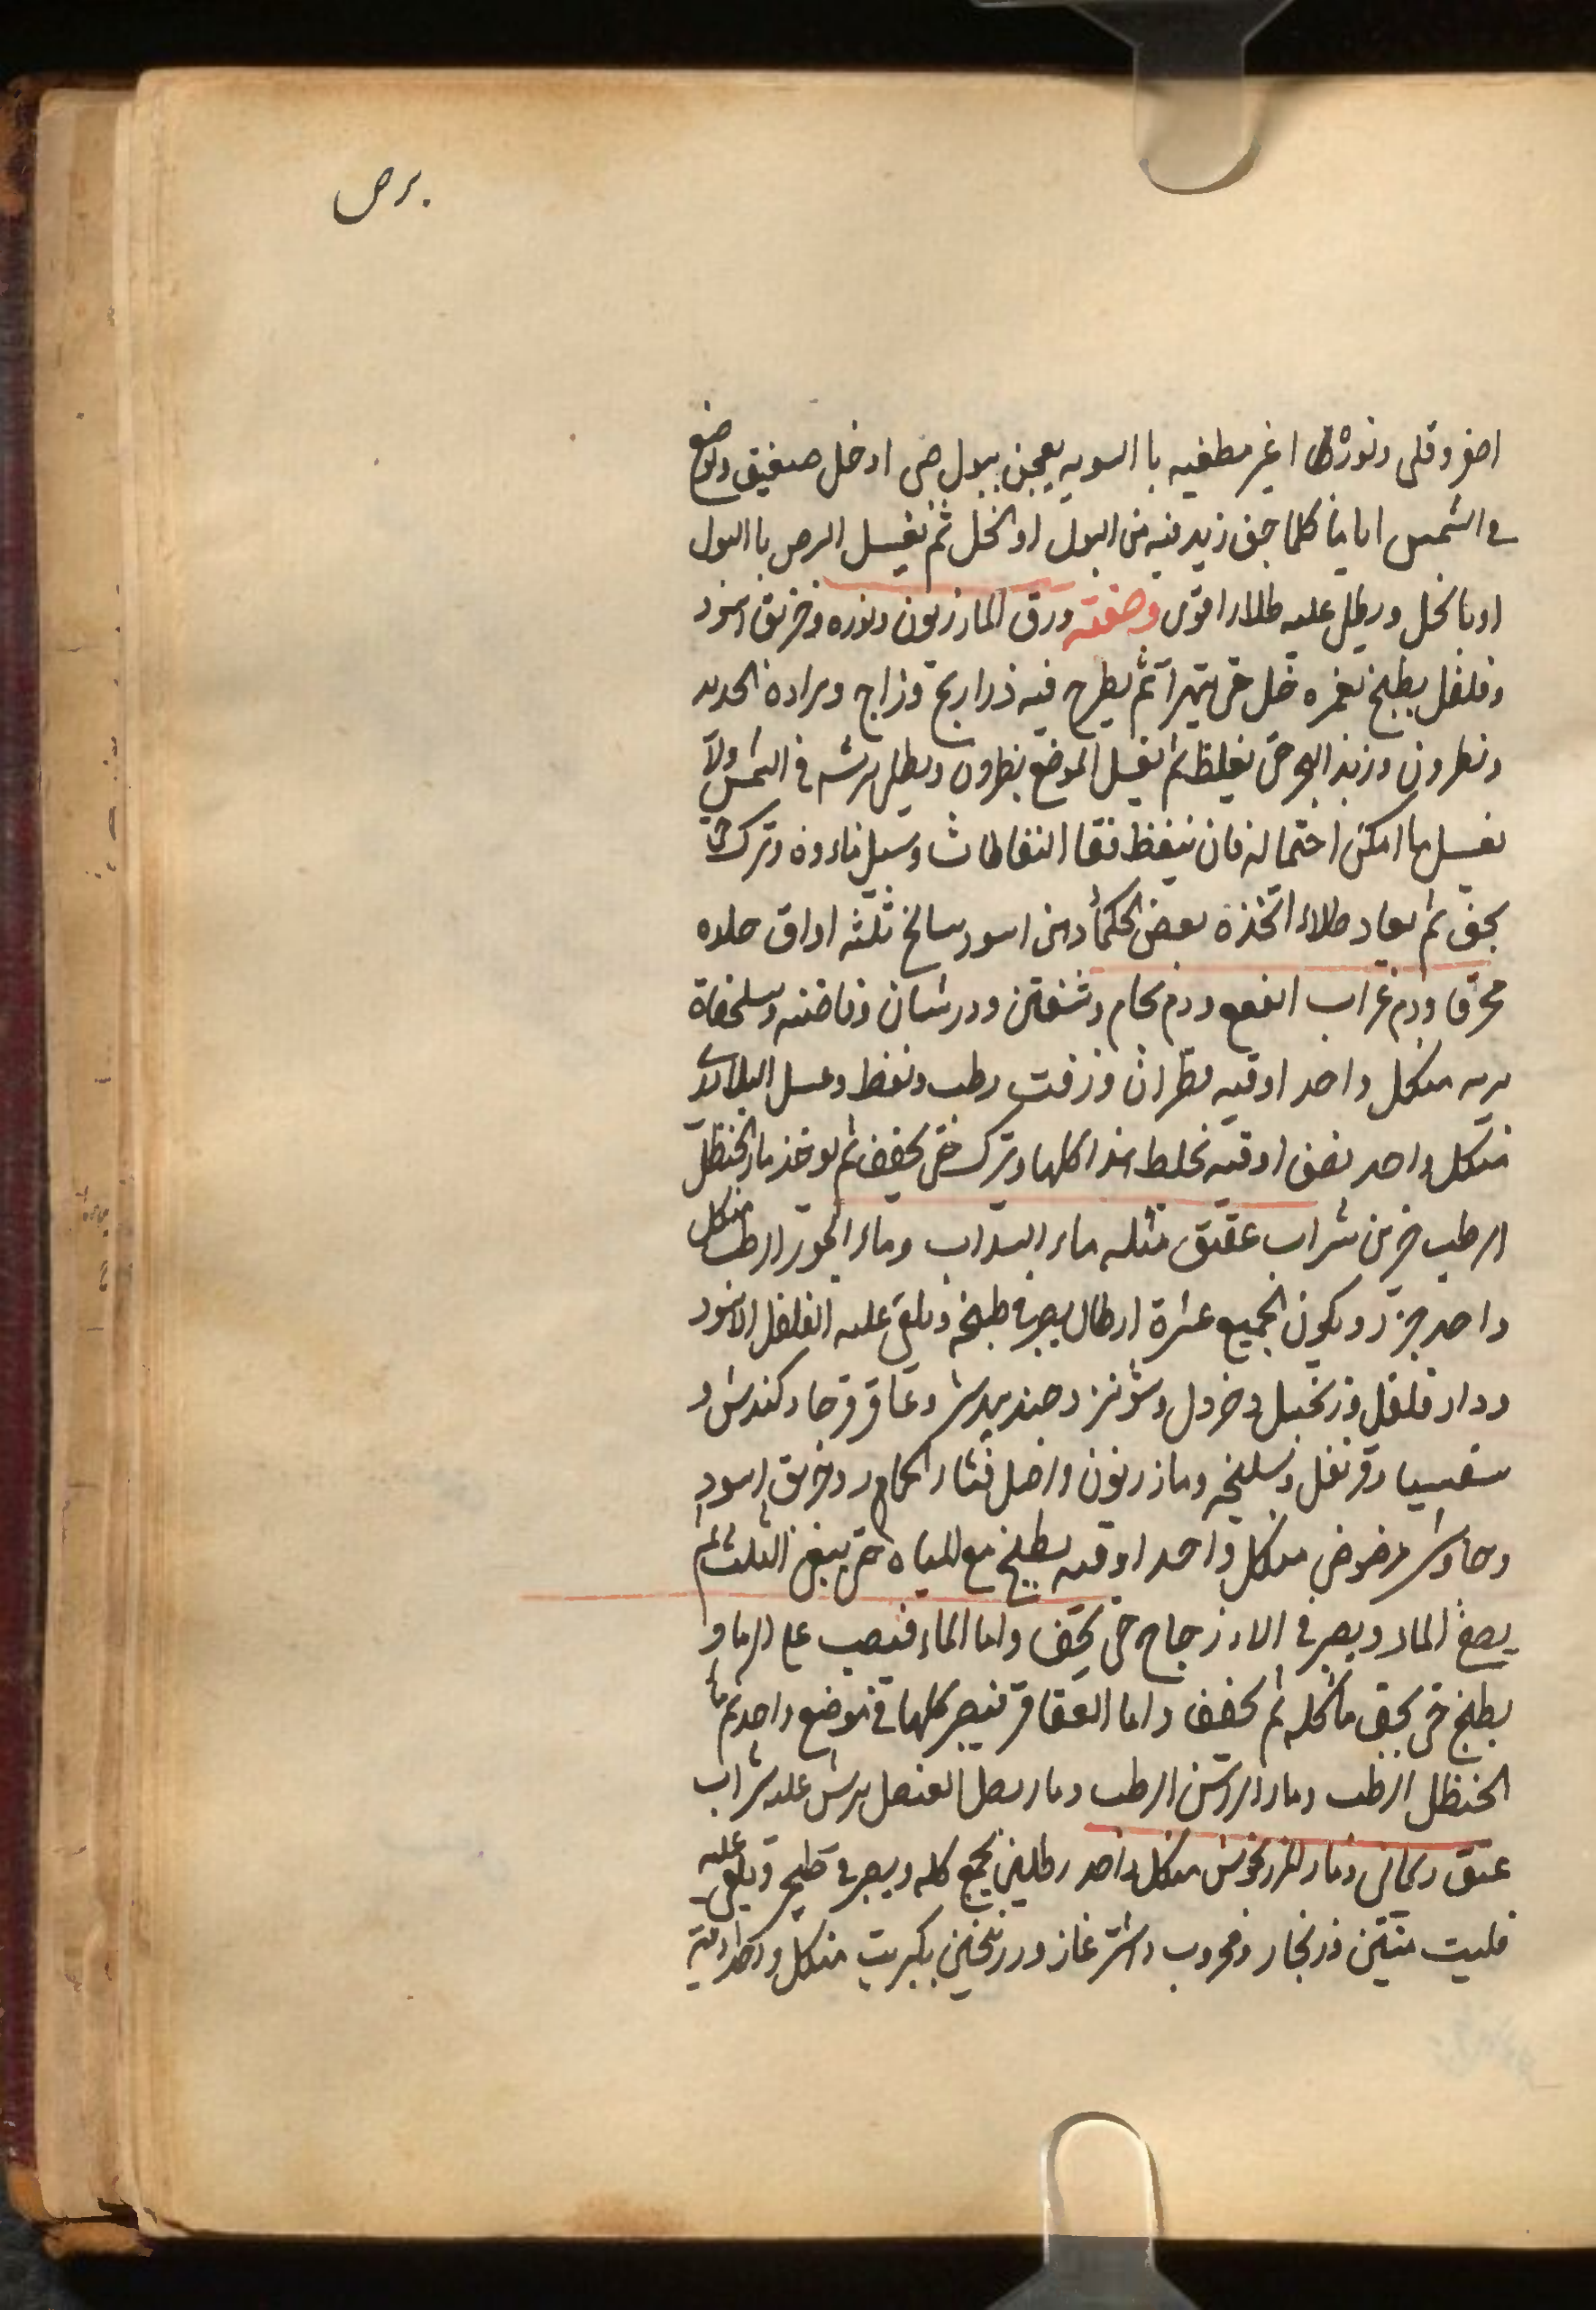 برص
اصفر وقلى ونورة غير مطفيه با السويه يعجن ببول صبى او خل صفيق ويوضع
في الشمس اياما كلما جف زيد فيه من البول او الخل ثم يغسل البرص با البول
او بالخل ويطلى عليه طلاء اقوى وصفته ورق المازريون ونوره وخربق اسود
وفلفل يطبخ بغمره خل حتى يتهرا ثم يطرح فيه ذراريح وزاج وبرادة الحديد
ونطرون وزبد البحر حتى يغلظ ثم يغسل الموضع بنطرون ويطلى بريشه في الشمس ولا
يغسل ما امكن احتماله فان تنفط فقا النفاطات وسيل ماءه وترك حتى
يجف ثم يعاد طلاء اتخذه بعض الحكماء من اسود سالخ ثلثه اواق جلده
محرقا ودم غراب ابقع ودم حمام وشفنين وورشان وفاخته وسلحفاة
بريه من كل واحد اوقيه قطران وزفت رطب ونفط وعسل البلادر
من كل واحد نصف اوقيه يخلط هذا كلها ويترك حتى يجفف ثم يوخذ ماء الحنظل
الرطب جز من شراب عتيق مثله ماء السداب وماء الجوز الرطب من كل
واحد جزء ويكون الجميع عشرة ارطال يصير في طبخه ويلقى عليه الفلفل الاسود
ودار فلفل وزنجبيل وخردل وشونيز وجندبيدستر وعاقرقرحا وكندش و
وقرنفل وسليخه ومازريون واصل قثاء الحمار وخربق اسود
وجاوشير مرضوض من كل واحد اوقيه يطبخ مع المياه حتى يبقى الثلث ثم
يصفى الماء ويصير في اناء زجاج حتى يجف واما الماء فيصب على الرماد و
يطبخ حتى يجف ثم يجفف واما العقاقير فيصير كلها في موضع واحد ثم ماء
الحنظل الرطب وماء الراسن الرطب وماء بصل العنصل يرش عليه شراب
عتيق ريحاني وماء المرزنجوش من كل واحد رطلين يجمع كله ويصير في ويلقى عليه
حلتيت منتن وزنجار وفربيون واشترغاز وزرنيخين وكبريت من كل واحد اوقية